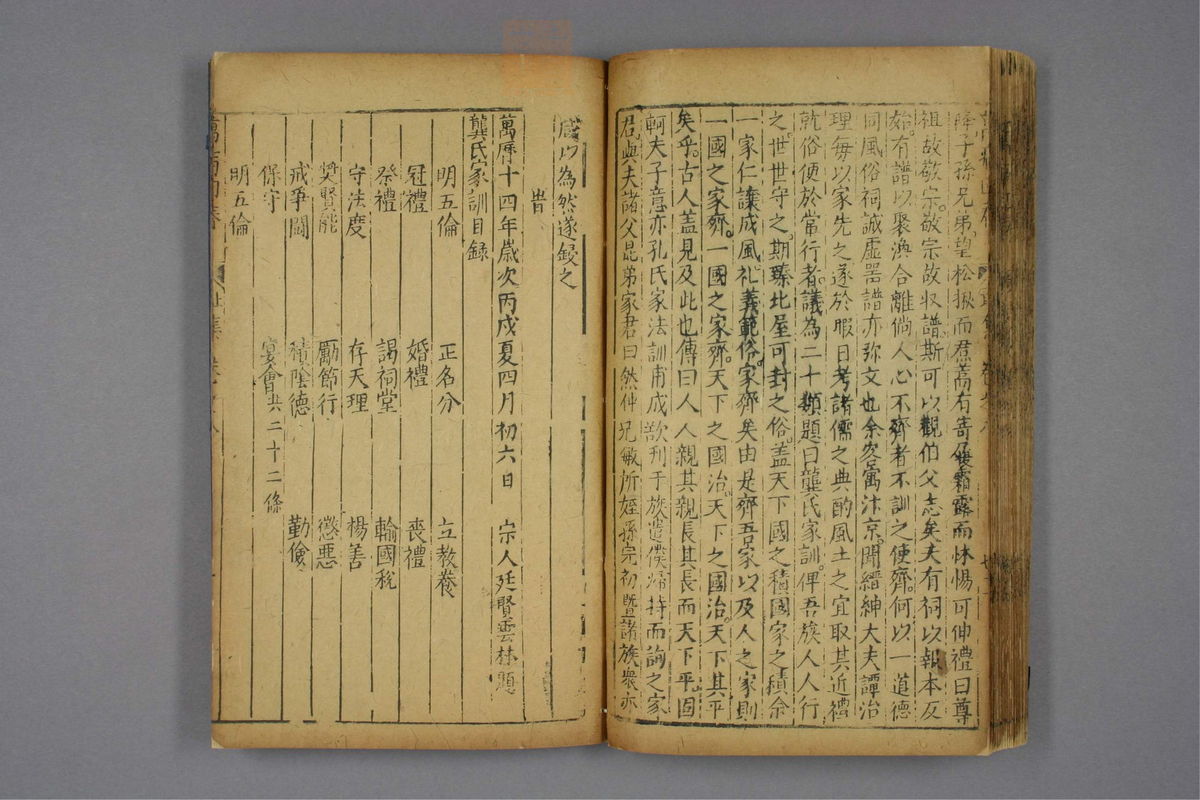 降子孫兄弟望松楸而焄蒿有寄履霜露而怵惕可伸禮曰尊
祖故敬宗敬宗故收譜斯可以觀伯父志矣夫有祠以報本反
始有譜以聚渙合離倘人心不齊者不訓之使齊何以一道德
同風俗祠誠虛器譜亦彌文也余客寓汴京聞縉紳大夫譚治
理每以家先之遂於暇日考諸儒之典酌風土之宜取其近禮
就俗便於常行者議為二十類題曰龔氏家訓俾吾族人人行
之世世守之期臻比屋可封之俗蓋天下國之積國家之積余
一家仁讓成風礼義範俗家齊矣由是齊吾家以及人之家則
一國之家齊一國之家齊天下之國治天下之國治天下其平
矣乎古人蓋見及此也傳曰人人親其親長其長而天下平固
軻夫子意亦孔氏家法訓甫成歆刊于族遣僕歸持而詢之家
君與夫諸父昆弟家君曰然仲兄敏所姪孫完初暨諸族衆亦
咸以為然遂鋟之
旹
萬曆十四年歲次丙戌夏四月初六日 宗人廷賢雲林題
龔氏家訓目録
明五倫 正名分 立教養
冠禮 婚禮 喪禮
祭禮 謁祠堂 輸國稅
守法度 存天理 楊善
奬賢能 勵節行 懲惡
戒爭鬪 積陰德 勤儉
保守 宴會共二十二條
明五倫